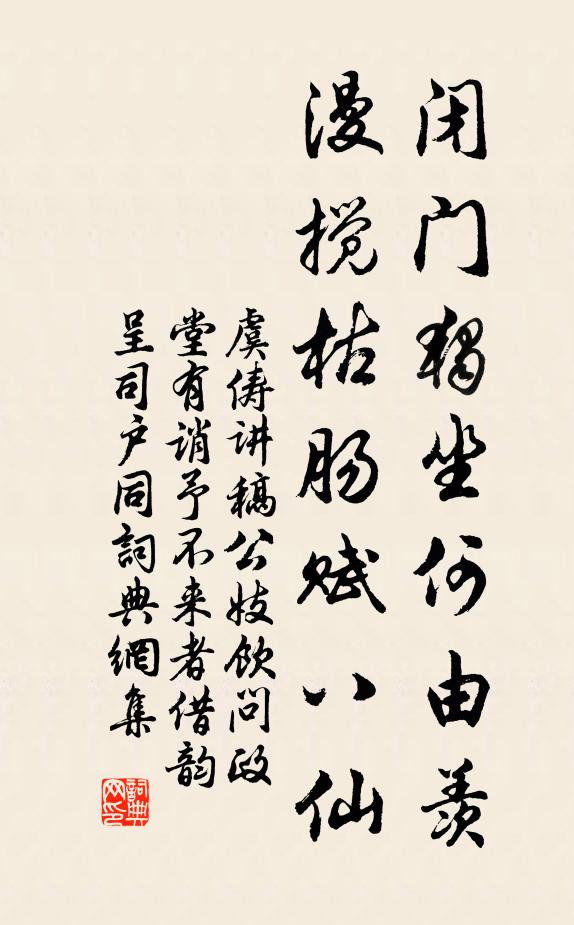 闭门独坐何由羡
漫搅枯肠赋八仙
虞俦讲稿公妓饮问政
堂有诮予不来者借韵
呈司户同詞典網集
詞典网印